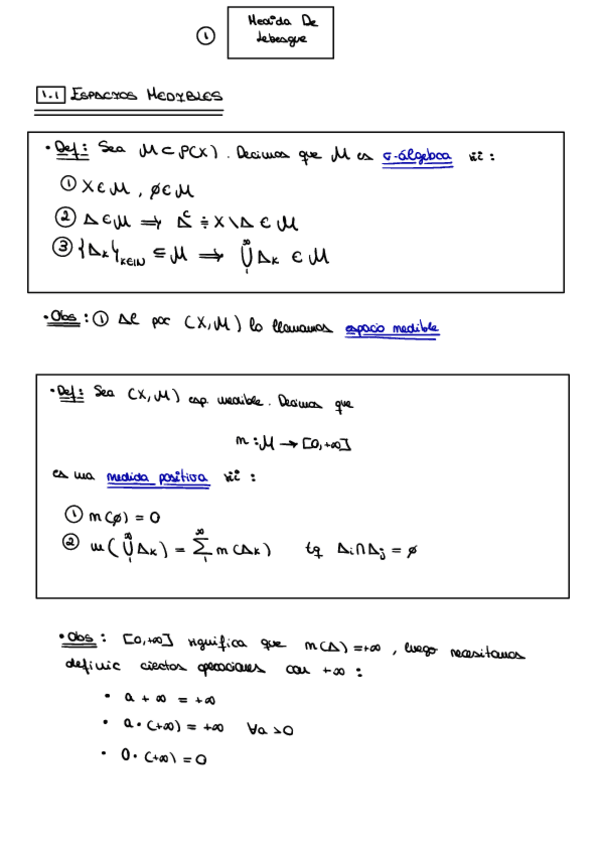 ① Medida De
Lebesgue
1.1 ESPACIOS MEDIBLES
• Def: Sea M ⊂ P(X). Decimos que M es σ-álgebra sii:
① X ∈ M, ∅ ∈ M
② A ∈ M ⟹ A^c ÷ X\A ∈ M
③ {A_k}_{k∈IN} ⊆ M ⟹ ∪_1^∞ A_k ∈ M
• Obs: ① Al par (X, M) lo llamamos espacio medible
• Def: Sea (X, M) esp. medible. Decimos que
m: M → [0, +∞]
es una medida positiva sii:
① m(∅) = 0
② m(∪_1^∞ A_k) = Σ_1^∞ m(A_k) tq A_i ∩ A_j = ∅
• Obs: [0, +∞] significa que m(A) = +∞, luego necesitamos
definir ciertas operaciones con +∞:
• a + ∞ = +∞
• a · (+∞) = +∞ ∀a > 0
• 0 · (+∞) = 0